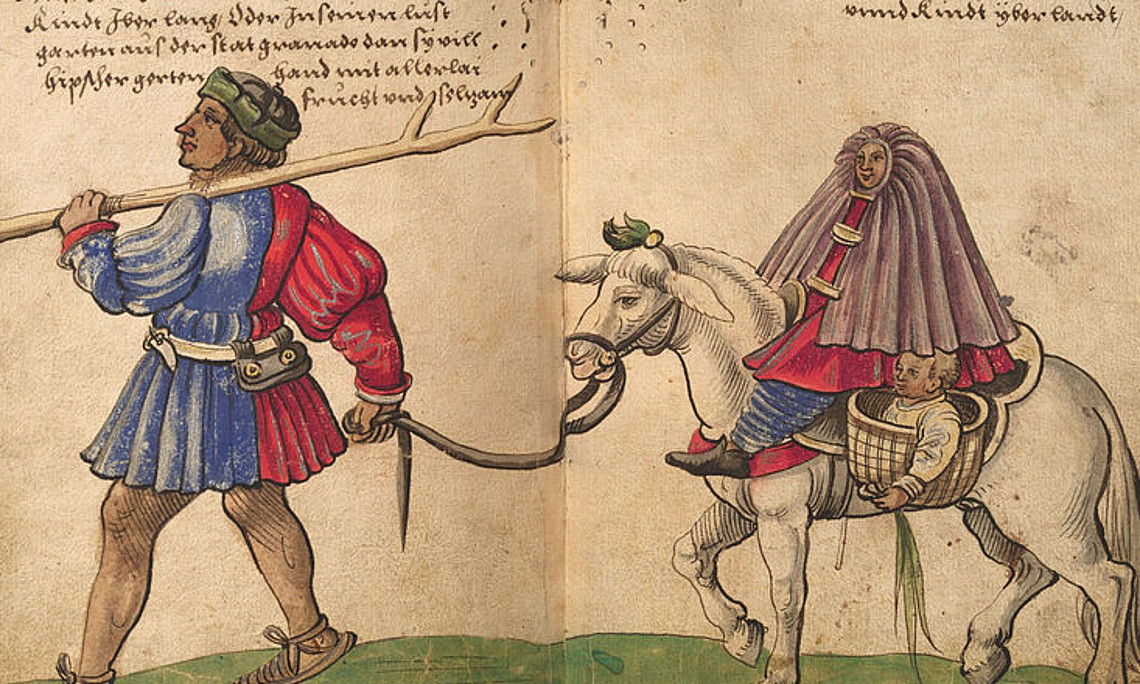 Kindt Iber lanz / Oder In seinen lust
garten aus der stat granado dan sy vill
hipscher gerten hand mit allerlai
frücht vnd selzam
vnnd Kindt yber landt /